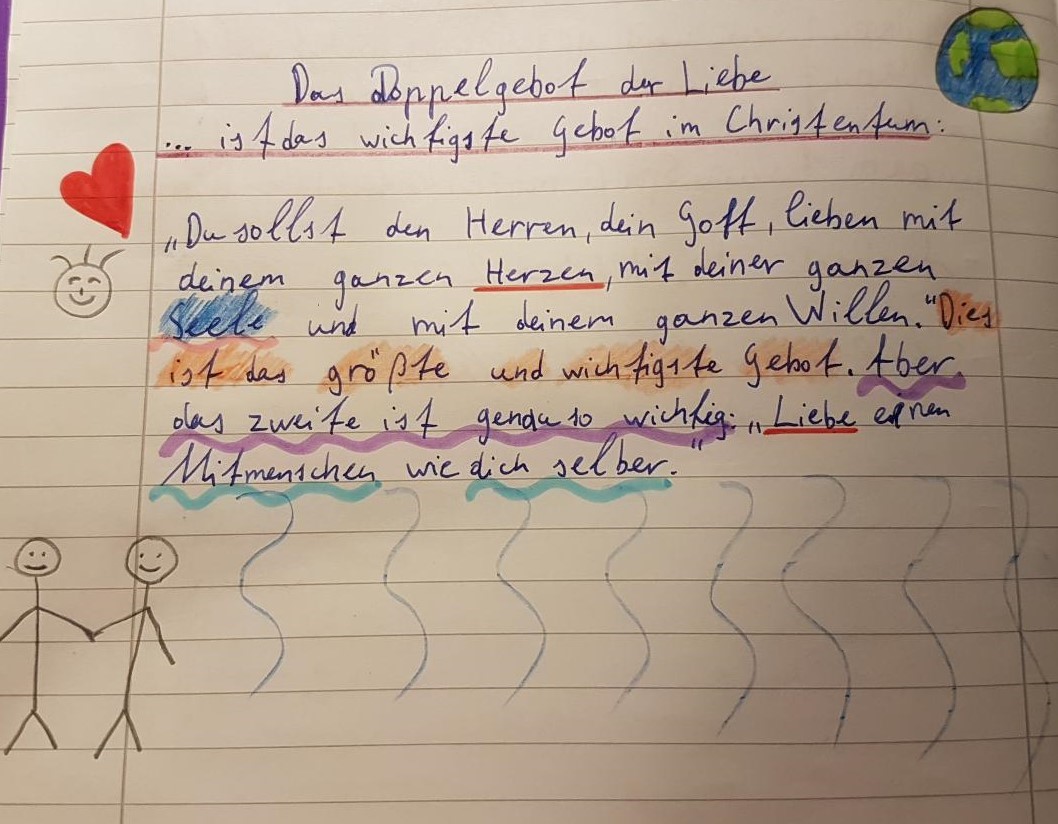 Das Doppelgebot der Liebe
... ist das wichtigste Gebot im Christentum:
„Du sollst den Herren, dein Gott, lieben mit
deinem ganzen Herzen, mit deiner ganzen
Seele und mit deinem ganzen Willen." Dies
ist das größte und wichtigste Gebot. Aber
das zweite ist genauso wichtig: „Liebe einen
Mitmenschen wie dich selber."